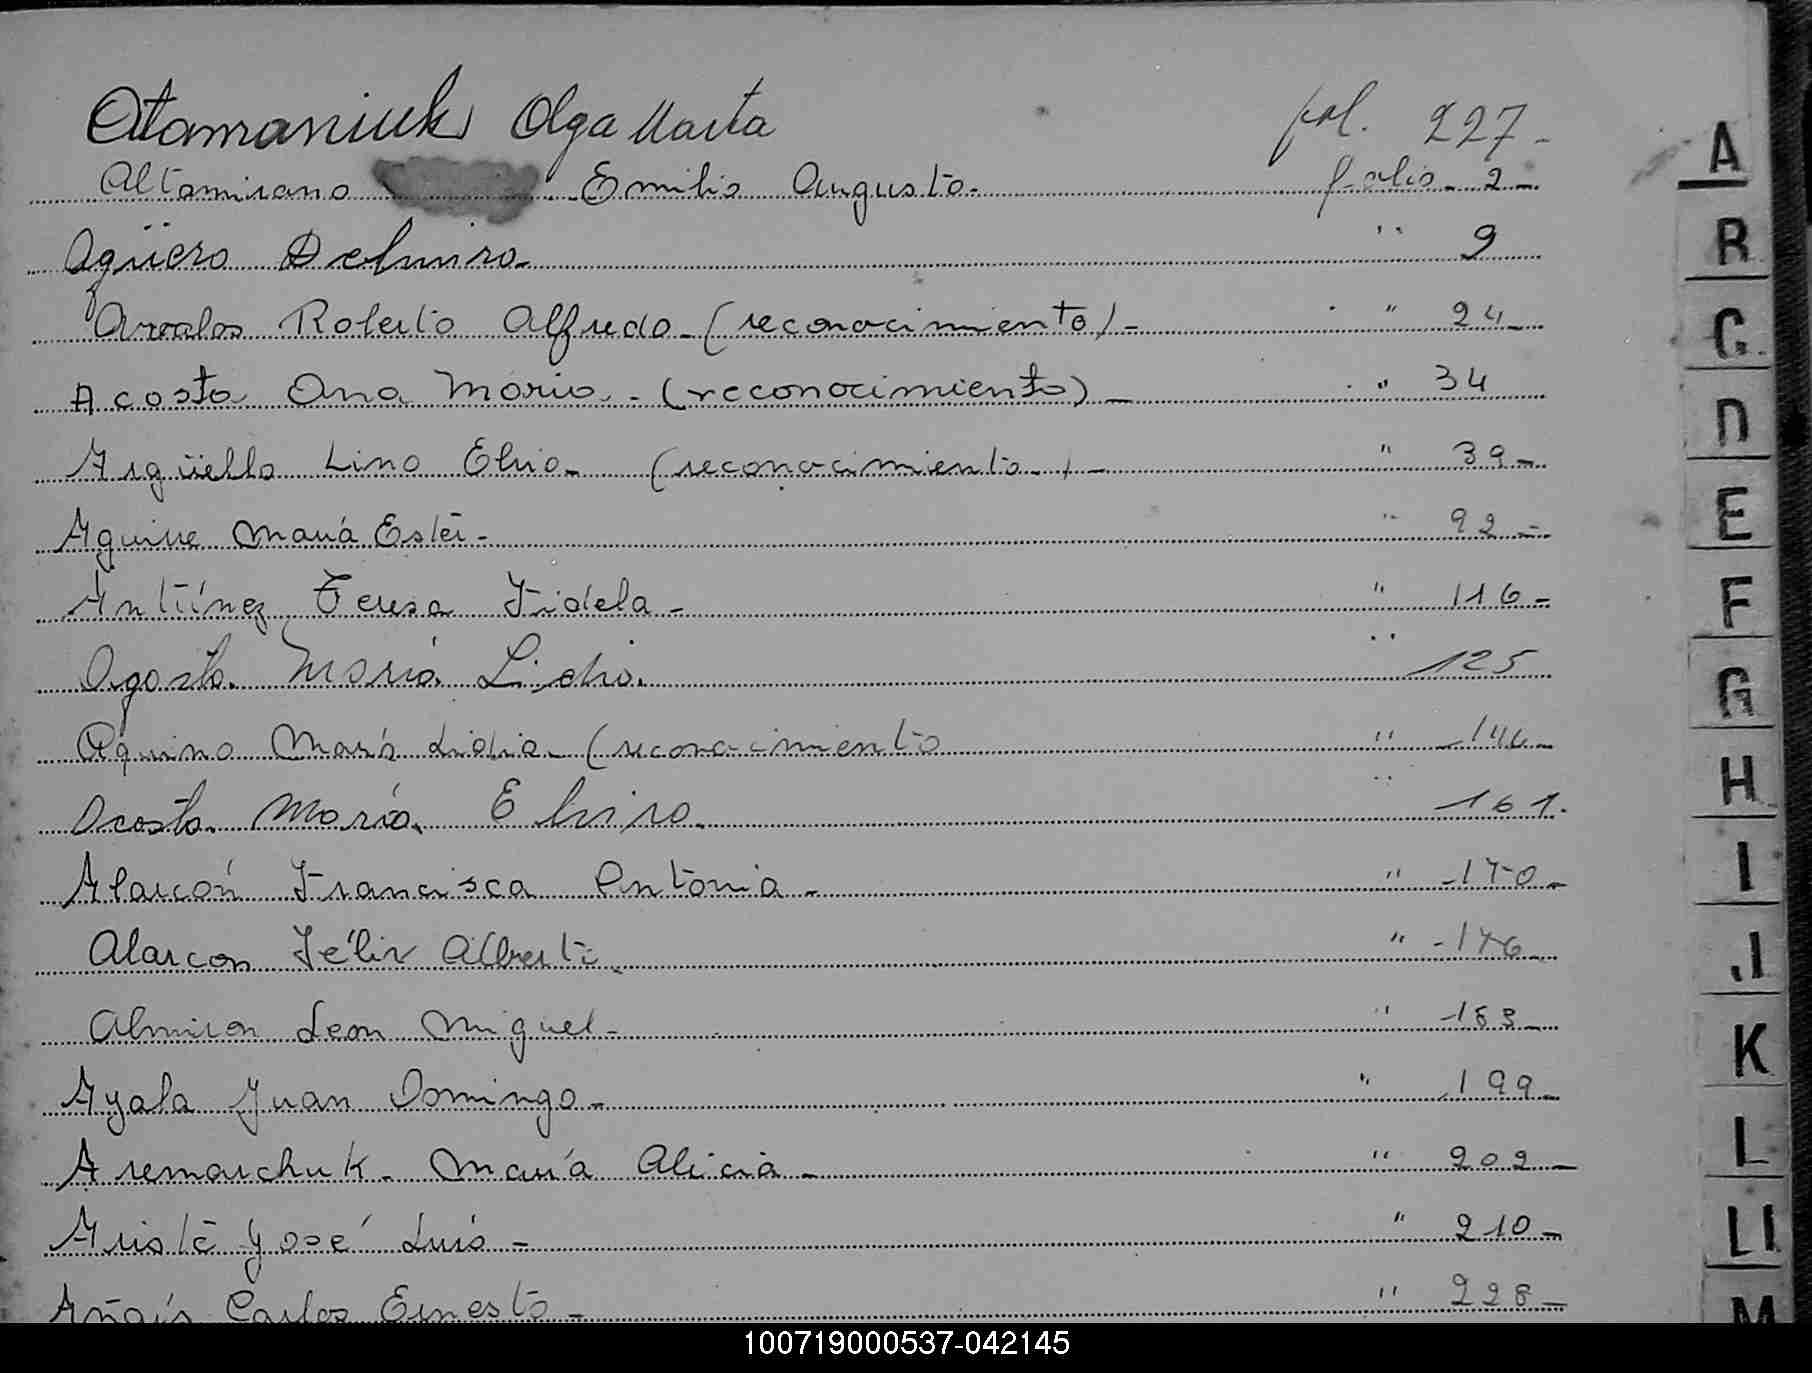 Atamaniuk Olga Marta fol. 227-
Altamirano Emilio Augusto- folio 2-
Agüero Delmira- " 9
Arvalos Roberto Alfredo-(reconocimiento)- " 24-
Acosta Ana Maria.-(reconocimiento)- " 34
Argüello Lino Elvio- (reconocimiento-)- " 39-
Aguirre María Ester- " 92-
Antúnez Teresa Fidela- " 116-
Agosto María Lidia. " 125
Aquino María Lidia-(reconocimiento " 146-
Acosta María Elvira. " 161.
Alarcón Francisca Antonia- " -170-
Alarcon Félix Alberto. " -176-
Almiron Leon Miguel- " -183-
Ayala Juan Domingo- " 199-
Aremarchuk- María Alicia- " 202-
Aristè José Luis- " 210-
Carlos Ernesto- " 228-
A
B
C
D
E
F
G
H
I
J
K
L
Ll
M
100719000537-042145